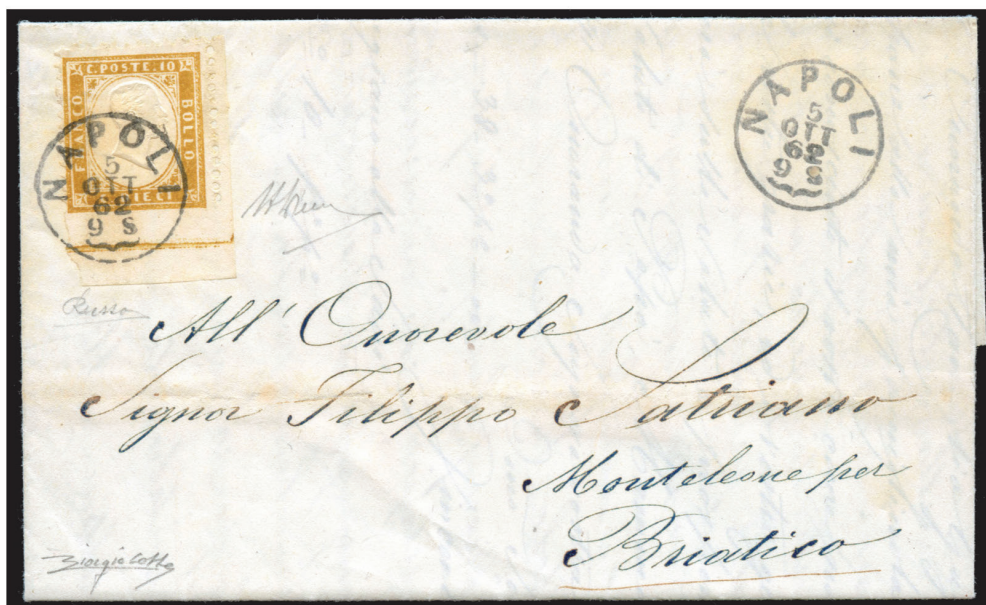 C. POSTE. 10
FRANCO
BOLLO
DIECI
NAPOLI
5
OTT
62
9 S
NAPOLI
5
OTT
62
9 S
Russo
All' Onorevole
Signor Filippo Satriano
Monteleone per
Briatico